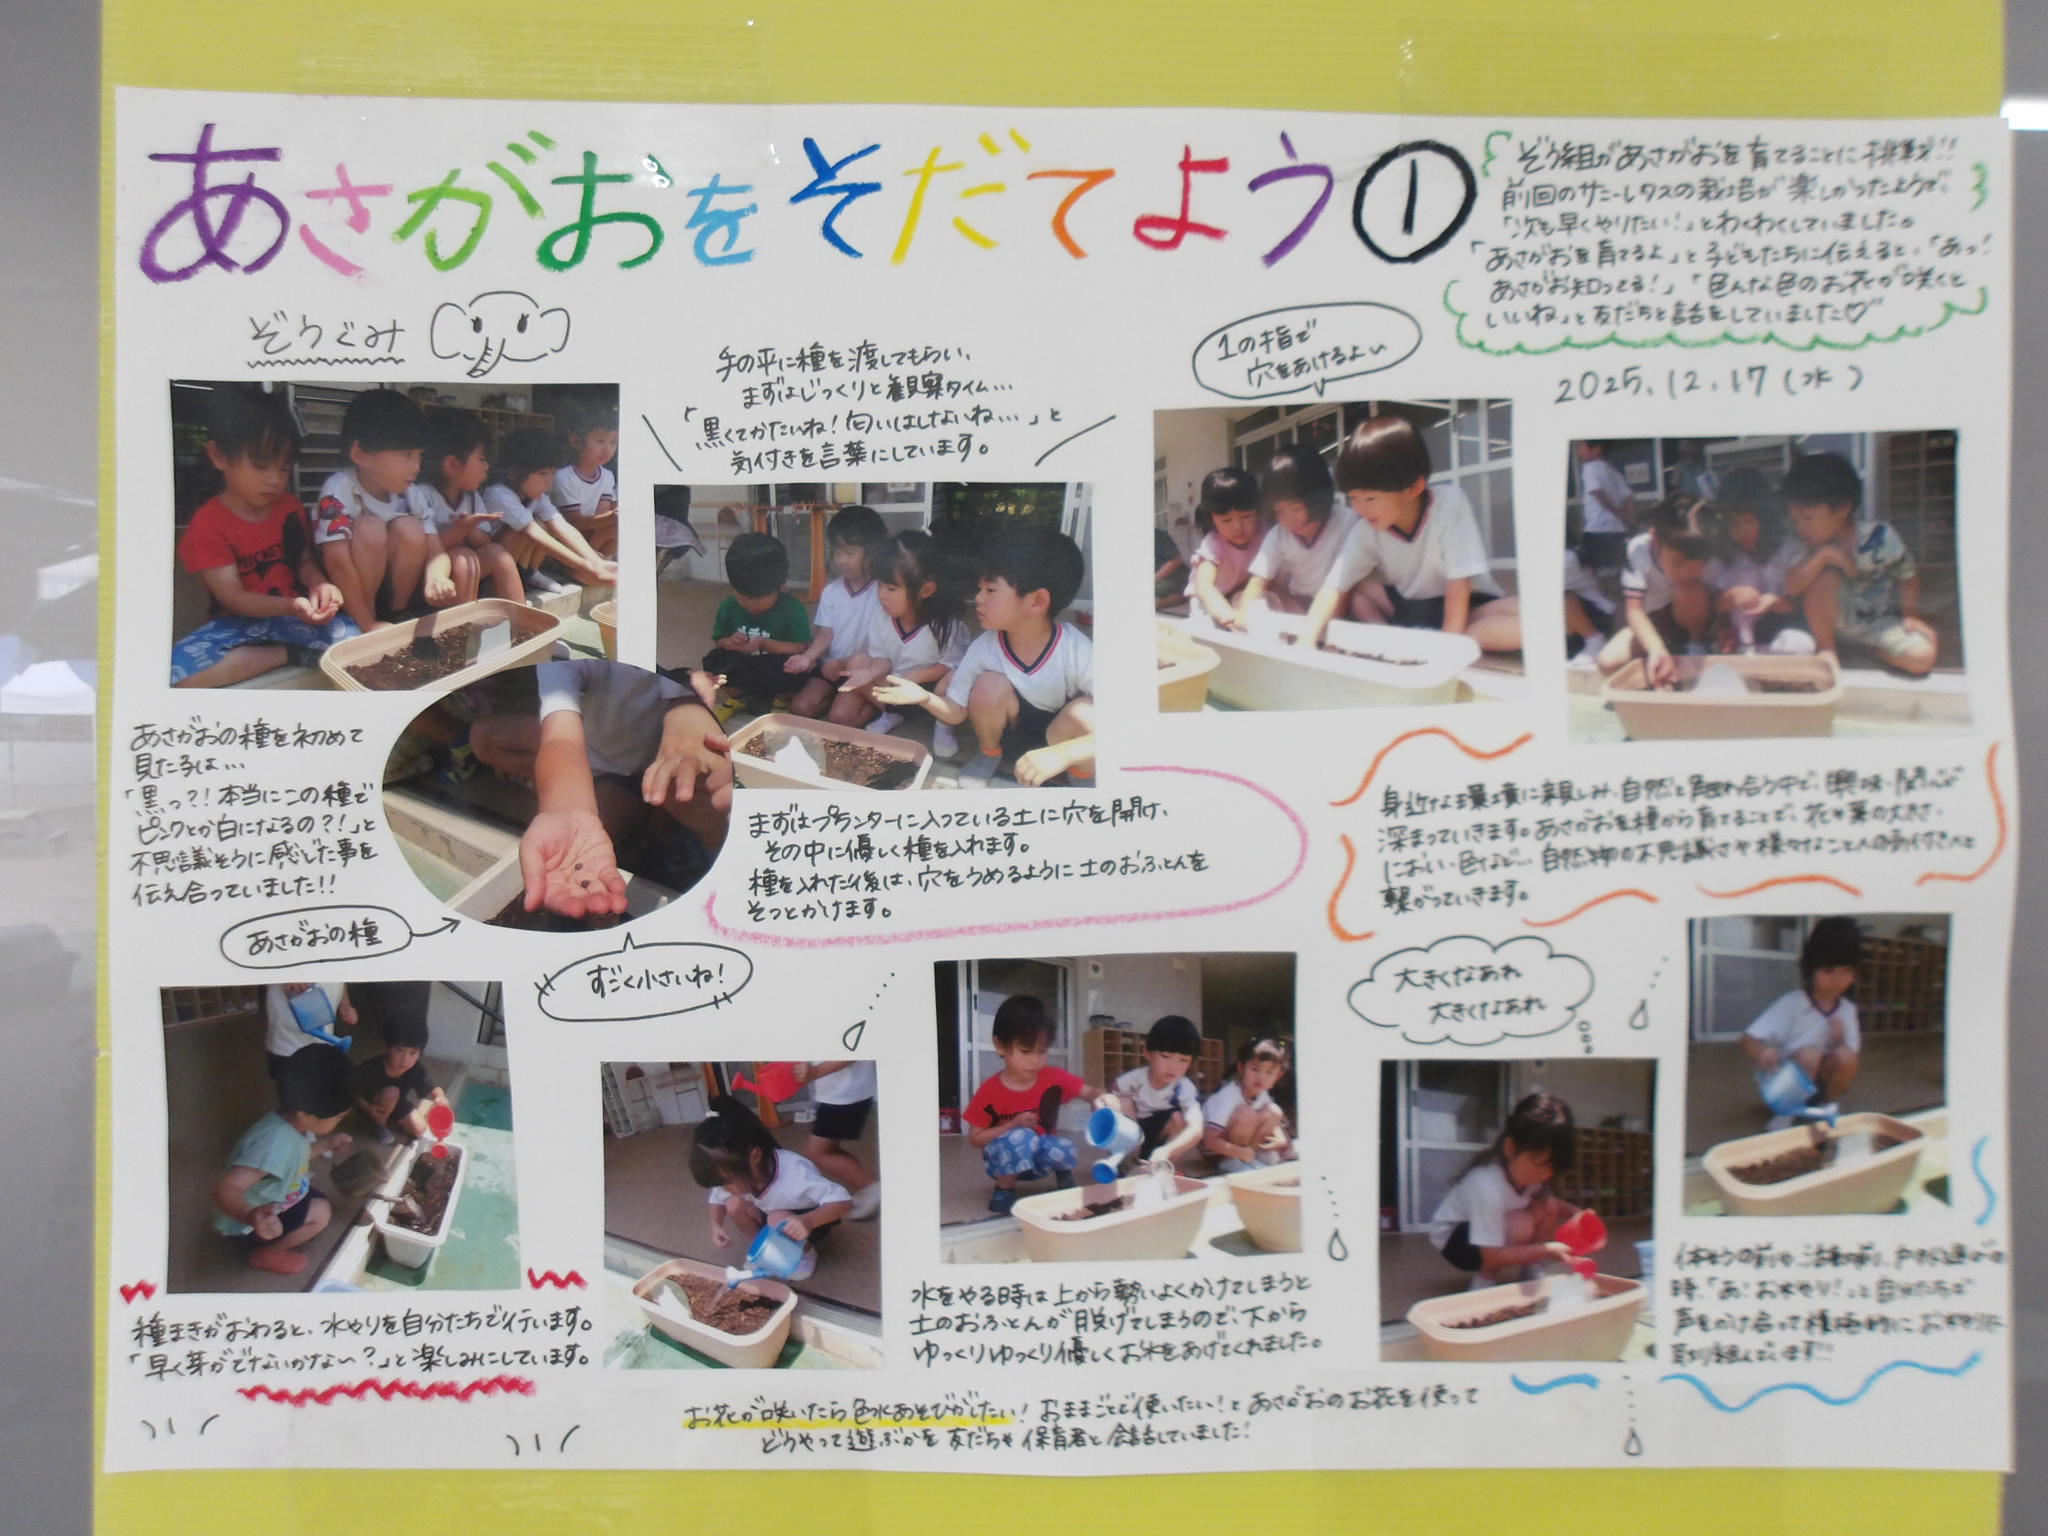 あさがおをそだてよう①
ぞう組があさがおを育てることに挑戦!!
前回のサニーレタスの栽培が楽しかったようで、
「次も早くやりたい!」とわくわくしていました。
「あさがおを育てるよ」と子どもたちに伝えると、「あっ!
あさがお知ってる!」「色んな色のお花が咲くと
いいね」と友だちと話をしていました♡
2025.12.17(水)
ぞうぐみ
手の平に種を渡してもらい、
まずはじっくりと観察タイム…
「黒くてかたいね!匂いはしないね…」と
気付きを言葉にしています。
1の指で
穴をあけるよい
あさがおの種を初めて
見た子は…
「黒っ?!本当にこの種で
ピンクとか白になるの?!」と
不思議そうに感じた事を
伝え合っていました!!
あさがおの種
すごく小さいね!
まずはプランターに入っている土に穴を開け、
その中に優しく種を入れます。
種を入れた後は、穴をうめるように土のおふとんを
そっとかけます。
身近な環境に親しみ、自然と触れ合う中で、興味・関心が
深まっていきます。あさがおを種から育てることで、花や葉の大きさ、
におい、色など… 自然物の不思議さや様々なことへの気付きへと
繋がっていきます。
大きくなあれ
大きくなあれ
種まきがおわると、水やりを自分たちで行います。
「早く芽がでないかな〜?」と楽しみにしています。
水をやる時は上から勢いよくかけてしまうと
土のおふとんが脱げてしまうので、下から
ゆっくりゆっくり優しくお水をあげてくれました。
時、「あ!お水やり!」と自分たちで
声をかけ合って積極的にお水やりに
取り組んでいます!!
お花が咲いたら色水あそびがしたい!おままごとで使いたい!とあさがおのお花を使って
どうやって遊ぶかを友だちや保育者と会話していました!